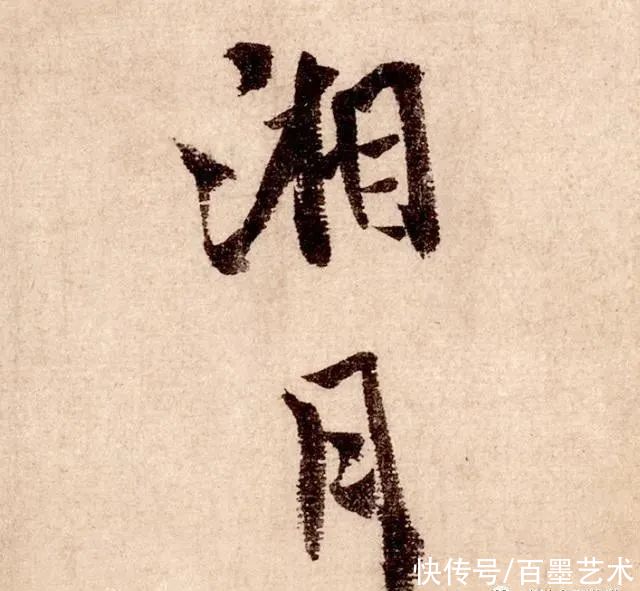 湘
月
快传号/百墨艺术